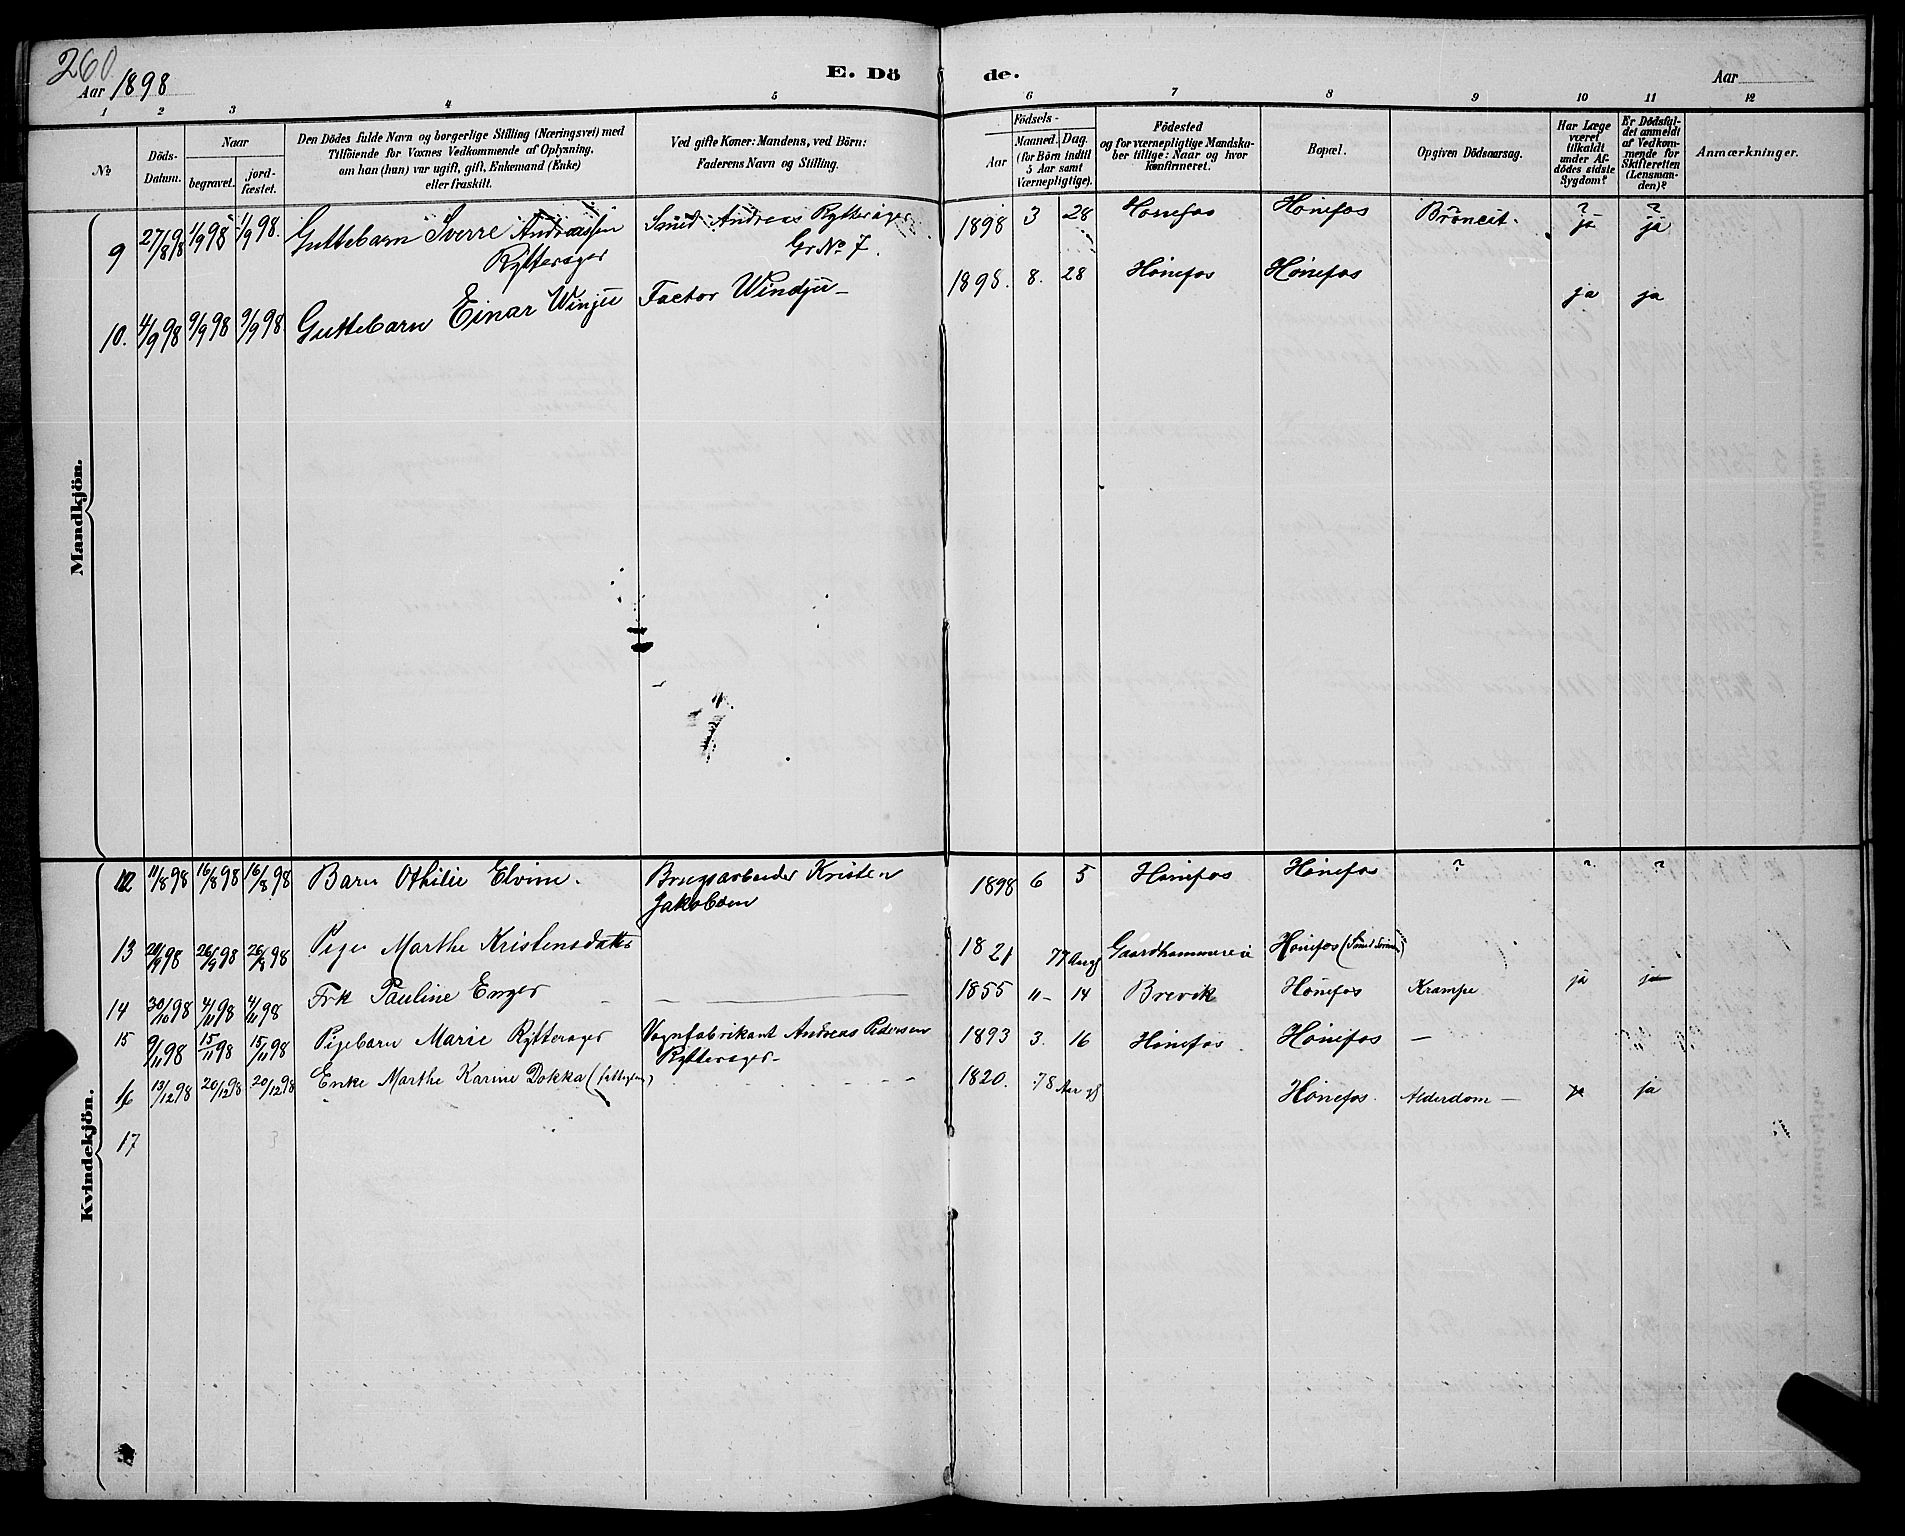 260
Aar 1898
E. Dö de.
Aar
1 2 3 4 5 6 7 8 9 10 11 12
No
Döds-Datum.
Naar
begravet.
jord-fæstet.
Den Dödes fulde Navn og borgerlige Stilling (Næringsvei) med
Tilföiende for Voxnes Vedkommende af Oplysning,
om han (hun) var ugift, gift, Enkemand (Enke)
eller fraskilt.
Ved gifte Koner: Mandens, ved Börn:
Faderens Navn og Stilling.
Födsels-
Aar
Maaned. Dag.
(for Börn indtil
5 Aar samt
Værnepligtige).
Födested
og for værnepligtige Mandska-
ber tillige: Naar og hvor
konfirmeret.
Bopæl.
Opgiven Dödsaarsag.
Har Læge
været
tilkaldt
under Af-
dödes sidste
Sygdom?
Er Dödsfal-
det anmeldt
af Vedkom-
mende for
Skifteretten
(Lensman-
den)?
Anmærkninger.
Mandkjön.
9 27/8 98 1/9 98 1/9 98. Guttebarn Sverre Andreassen Smed Andreas Rytterager 1898 3 28 Hönefos Hönefos Broncit. ? ja ? ja
Rytterager Gr No 7.
10. 4/9 98 9/9 98 9/9 98 Guttebarn Einar Winju Factor Windju- 1898. 8. 28 Hönefos Hönefos ja ja
Kvindekjön.
12 11/8 98 16/8 98 16/8 98 Barn Othilie Elvine. Brugsarbeider Kristen 1898 6 5 Hönefos Hönefos ? ? ?
Jakobsen
13 98 26/9 98 98 Pige Marthe Kristensdatter 1821 77 Aar gl Gaardhammereie Hönefos
14 30/10 98 4/11 98 4/11 98 Frk Pauline Enger — 1855 11- 14 Brevik Hönefos Krampe ja ja
15 9/11 98 15/11 98 15/11 98 Pigebarn Marie Rytterager Vognfabrikant Andreas Pedersen 1893 3. 16 Hönefos. Hönefos —
Rytterager-
16 13/12 98 20/12 98 20/12 98 Enke Marthe Karine Dokka 1820. 78 Aar gl Hönefos. Alderdom — ja
17